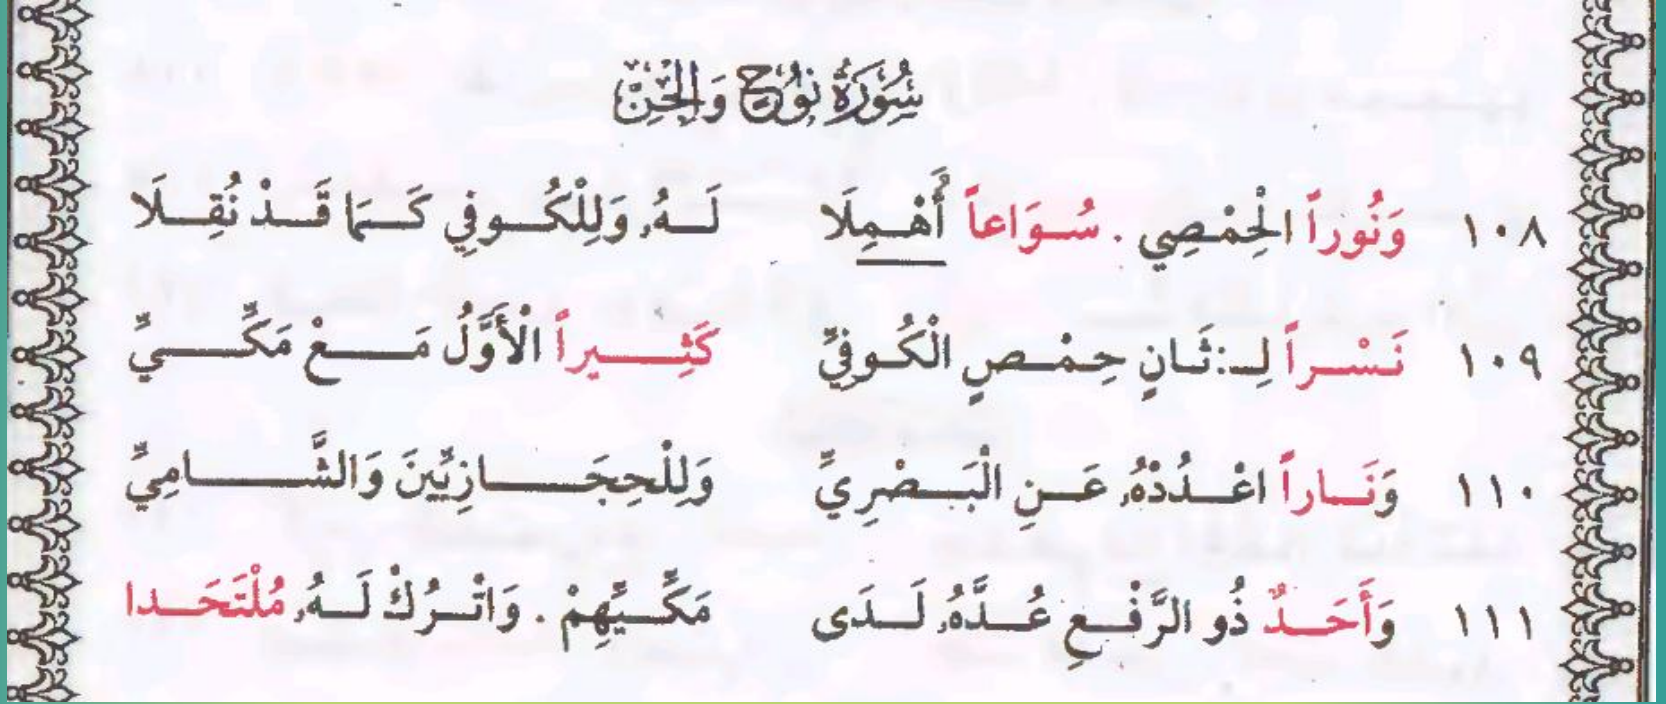 سُورَةُ نُوحٍ وَالْجِنِّ
١٠٨ وَنُوراً الْحِمْصِي . سُوَاعاً أُهْمِلَا لَهُ, وَلِلْكُوفِي كَمَا قَدْ نُقِلَا
١٠٩ نَسْراً لِـ:ثَانٍ حِمْصٍ الْكُوفِيِّ كَثِيراً الْأَوَّلُ مَعْ مَكِّيِّ
١١٠ وَنَاراً اعْدُدْهُ, عَنِ الْبَصْرِيِّ وَلِلْحِجَازِيِّينَ وَالشَّامِيِّ
١١١ وَأَحَدٌ ذُو الرَّفْعِ عُدَّهُ, لَدَى مَكِّيِّهِمْ . وَاتْرُكْ لَهُ, مُلْتَحَدا